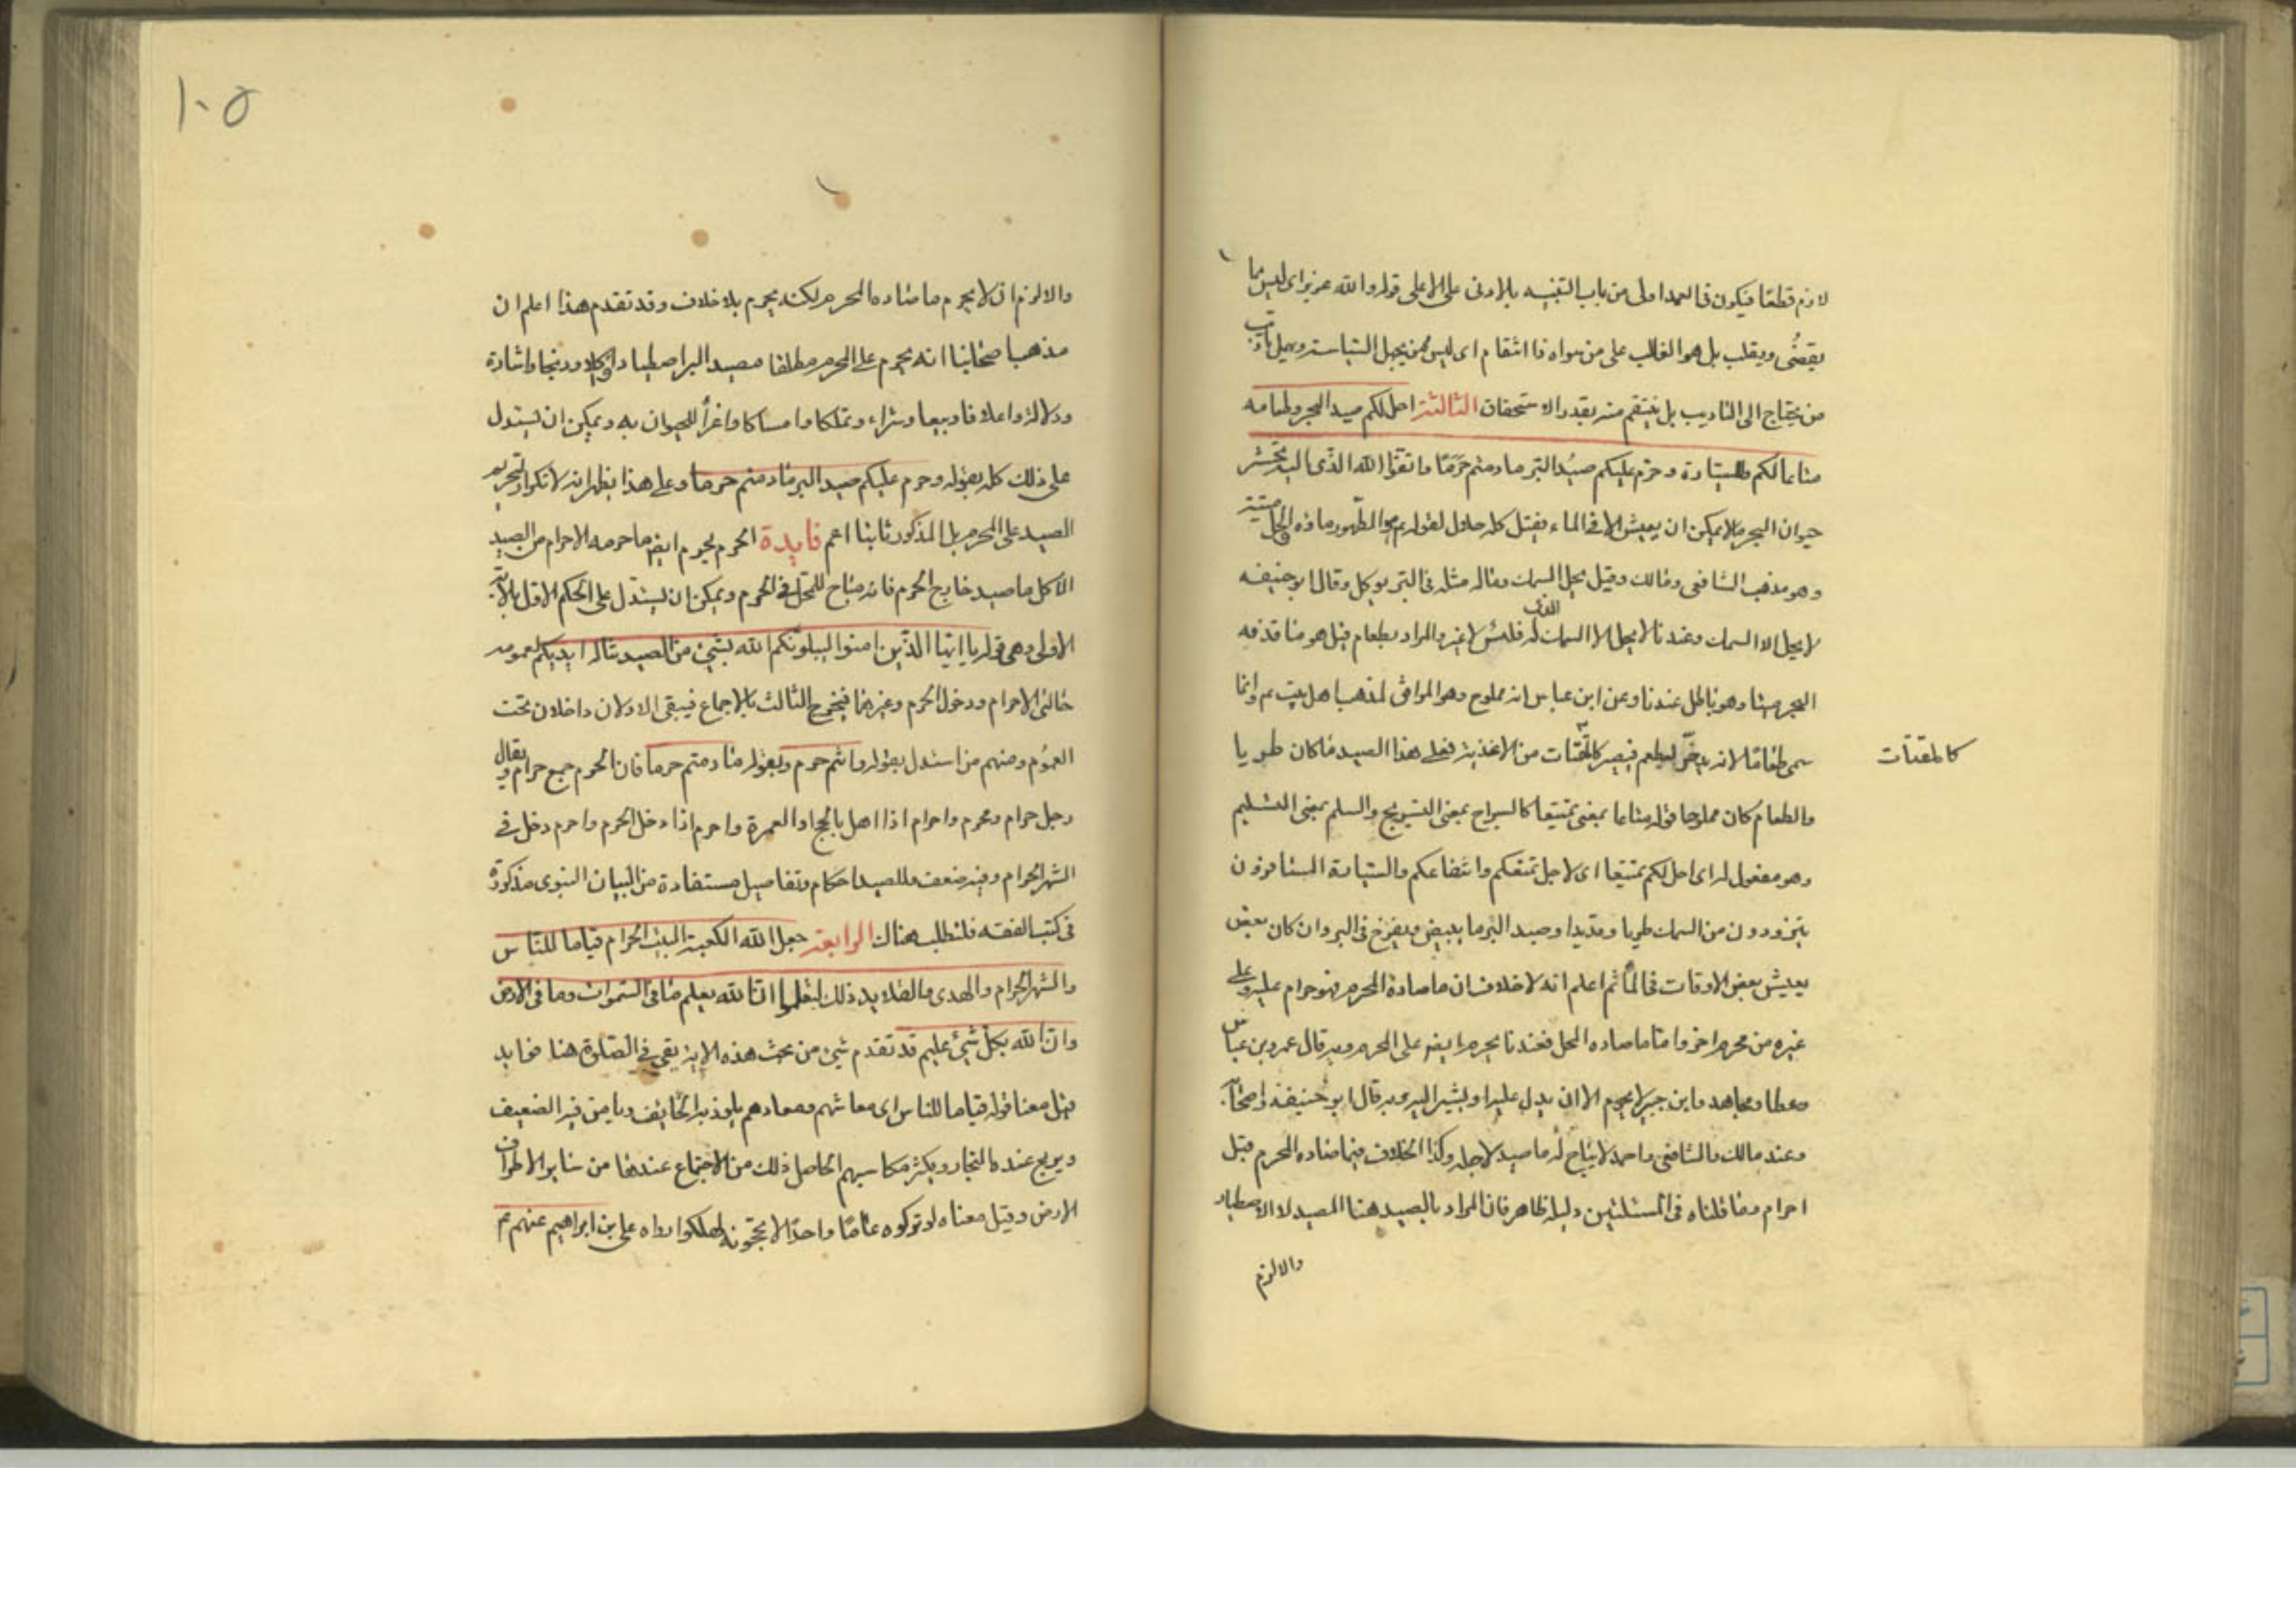 لازم قطعا فيكون في العمد اولى من باب التنبيه بالادنى على الاعلى قوله والله عزيز اى ليس مما
يقضى ويغلب بل هو الغالب على من سواه ذا انتقام اى ليس ممن يجهل السياسة ويهمل تاديب
من يحتاج الى التاديب بل ينتقم منه بقدر الاستحقاق الثالثة احل لكم صيد البحر وطعامه
متاعا لكم وللسيارة وحرم عليكم صيد البر ما دمتم حرما واتقوا الله الذى اليه تحشرون
حيوان البحر ما لا يمكن ان يعيش الا في الماء فقيل كله حلال لقوله هو الطهور ماؤه الحل ميتته
وهو مذهب الشافعى ومالك وقيل يحل السمك وماله مثله في البر يوكل وقال ابو حنيفه
لا يحل الا السمك وعندنا لا يحل الا السمك الذى له فلس لا غير والمراد بطعامه قيل هو ما قذفه
البحر ميتا وهو باطل عندنا وعن ابن عباس انه مملوح وهو الموافق لمذهب اهل بيت ع م وانما
سمى طعاما لانه يدخر ليطعم فيصير كالمقتات من الاغذية فعلى هذا الصيد ما كان طريا
كالمقتات
والطعام كان مملوحا قوله متاعا بمعنى تمتيعا كالسراح بمعنى التسريح والسلم بمعنى التسليم
وهو مفعول له اى احل لكم تمتيعا اى لاجل تمتعكم وانتفاعكم والسيارة المسافرون
يتزودون من السمك طريا وقديدا وصيد البر ما يبيض ويفرخ في البر وان كان بعض
يعيش بعض الاوقات في الماء ثم اعلم انه لا خلاف ان ما صاده المحرم فهو حرام عليه وعلى
غيره من محرم اخر واما ما صاده المحل فعندنا يحرم ايضا على المحرم وبه قال عمر وبن عباس
وعطا ومجاهد وابن جبير لا يحرم الا ان يدل عليه او يشير اليه وبه قال ابو حنيفة واصحابه
وعند مالك والشافعى واحمد لا يباح له ما صيد لاجله وكذا الخلاف فيما صاده المحرم قبل
احرامه وما قلناه في المسئلتين دليله ظاهر فان المراد بالصيد هنا المصيد لا الاصطياد
والا لزم
١٠٥
والا لزم ان لا يحرم ما صاده المحرم لكنه يحرم بلا خلاف وقد تقدم هذا اعلم ان
مذهب اصحابنا انه يحرم على المحرم مطلقا مصيد البر اصطيادا واكلا وذبحا واشارة
ودلالة واغلاقا وبيعا وشراء وتملكا وامساكا واغراً للحيوان به ويمكن ان يستدل
على ذلك كله بقوله وحرم عليكم صيد البر ما دمتم حرما وعلى هذا يظهر انه لا تكرار لتحريم
الصيد على المحرم بل المذكور ثانيا اعم فايدة الحرم يحرم ايضا ما حرمه الاحرام من الصيد
الا كل ما صيد خارج الحرم فانه مباح للمحل في الحرم ويمكن ان يستدل على الحكم الاول بالاية
الاولى وهى قوله يا ايها الذين امنوا ليبلونكم الله بشئ من الصيد تناله ايديكم لعمومه
حالتى الاحرام ودخول الحرم وغيرهما فيخرج الثالث بالاجماع فيبقى الاولان داخلان تحت
العموم ومنهم من استدل بقوله وانتم حرم وبقوله ما دمتم حرما فان الحرم جمع حرام ويقال
رجل حرام ومحرم واحرام اذا اهل بالحج او العمرة واحرم اذا دخل الحرم واحرم دخل في
الشهر الحرام وفيه ضعف وللصيد احكام وتفاصيل مستفادة من البيان النبوى مذكورة
في كتب الفقه فلتطلب هناك الرابعة جعل الله الكعبة البيت الحرام قياما للناس
والشهر الحرام والهدى والقلايد ذلك لتعلموا ان الله يعلم ما في السموات وما في الارض
وان الله بكل شئ عليم قد تقدم شئ من بحث هذه الاية بقى في الصلوة هنا فوايد
قيل معنا قوله قياما للناس اى معاشهم ومعادهم يلوذ به الخايف ويامن فيه الضعيف
ويربح عنده التجار ويكثر مكاسبهم الحاصل ذلك من الاجتماع عندها من ساير الاطراف
الارض وقيل معناه لو تركوه عاما واحدا لا يحجونه لهلكوا رواه على بن ابراهيم عنهم ع م